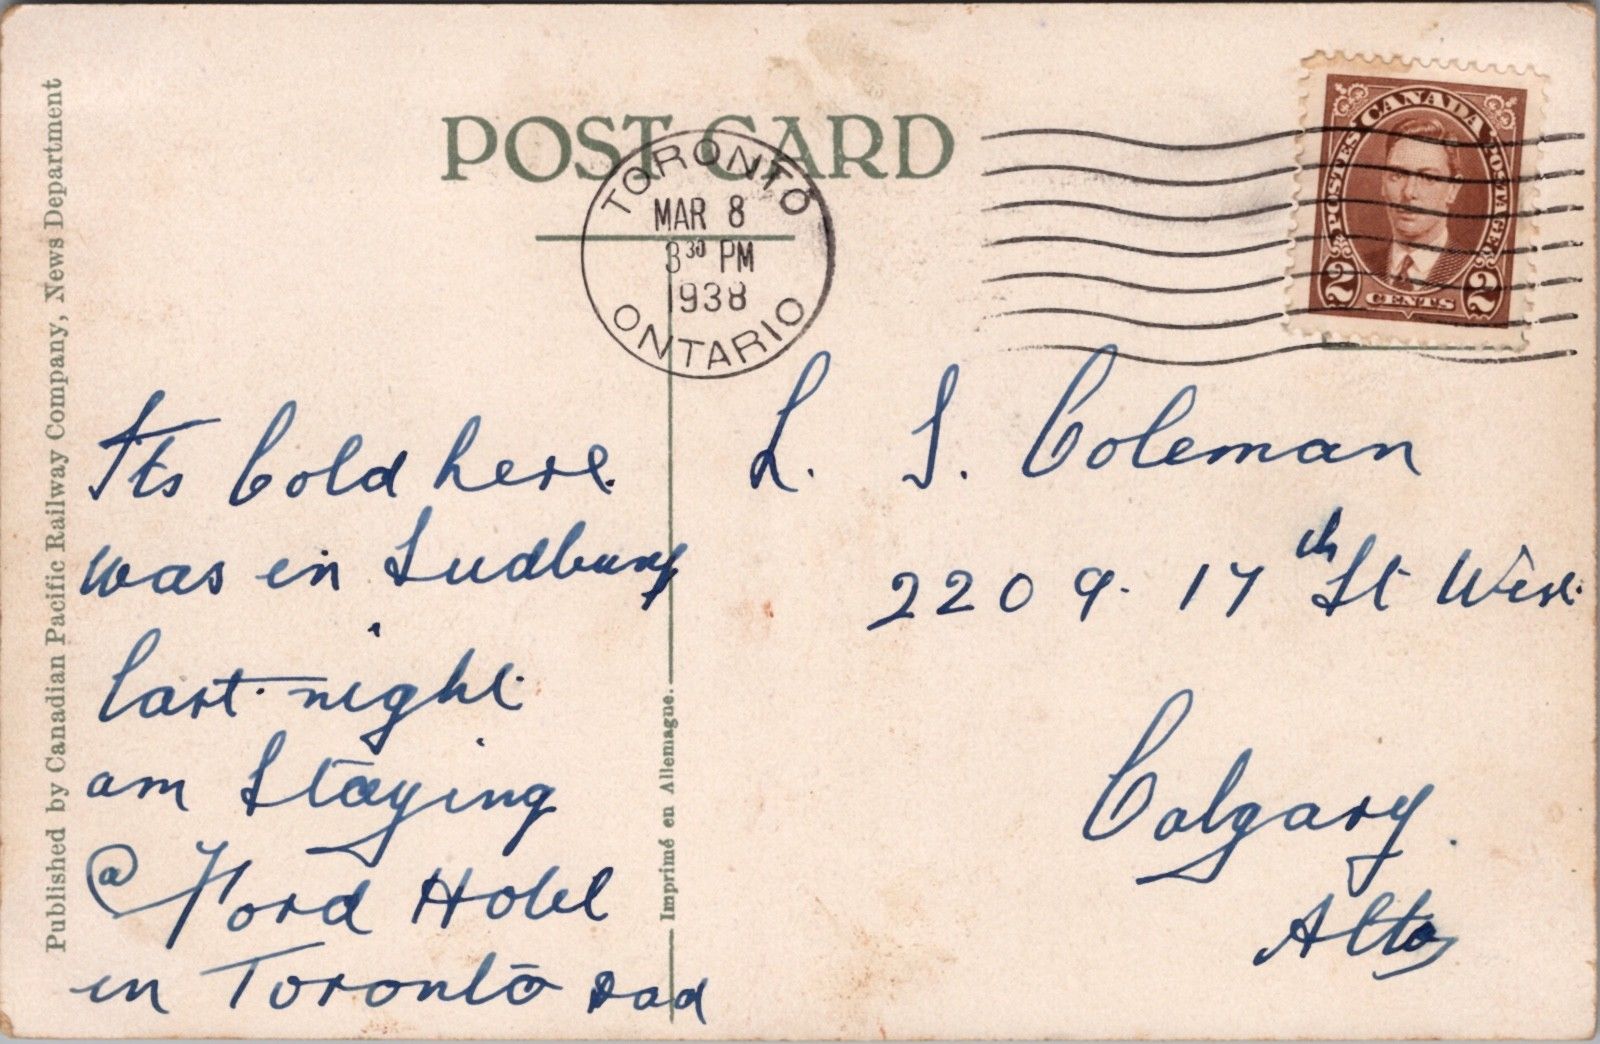 POST CARD
TORONTO
MAR 8
3³⁰ PM
1938
ONTARIO
CANADA
POSTES POSTAGE
2 CENTS 2
Published by Canadian Pacific Railway Company, News Department
Its Cold here.
was in Sudbury
last night
am Staying
@ Ford Hotel
in Toronto Dad
Imprimé en Allemagne.
L. S. Coleman
2209. 17th St West
Calgary.
Alta